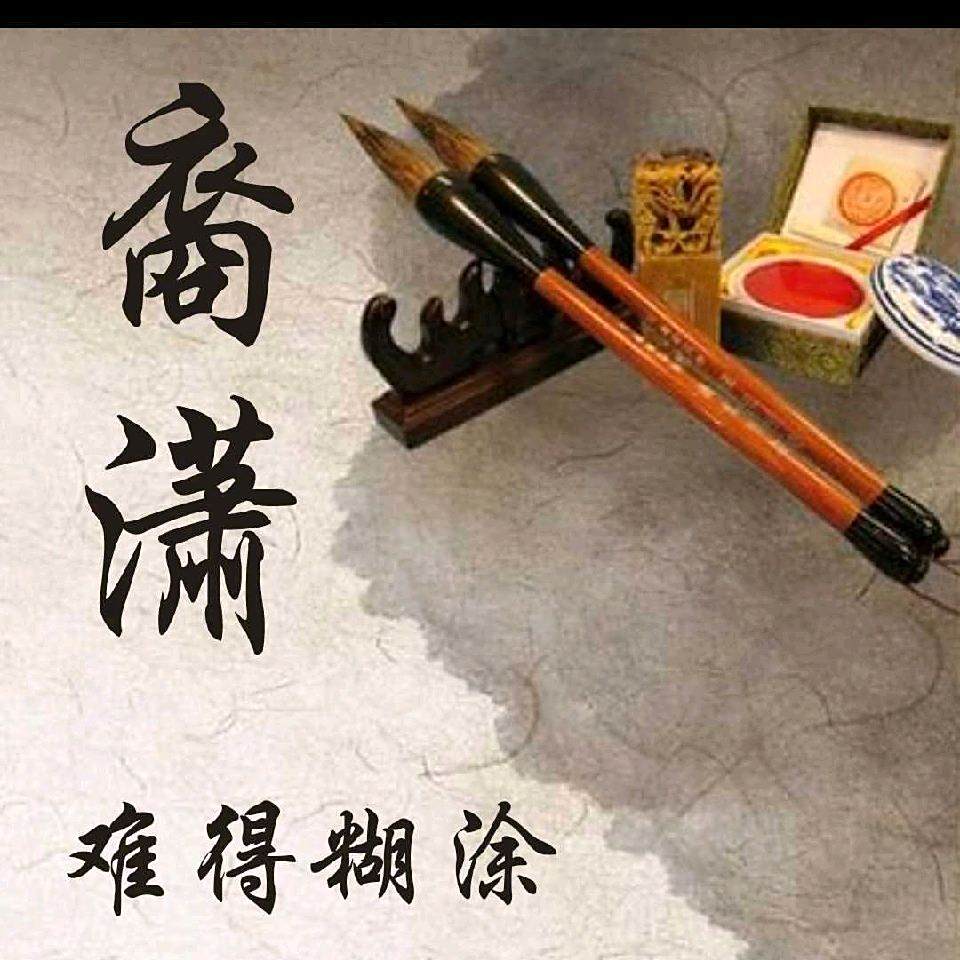 裔潇
难得糊涂